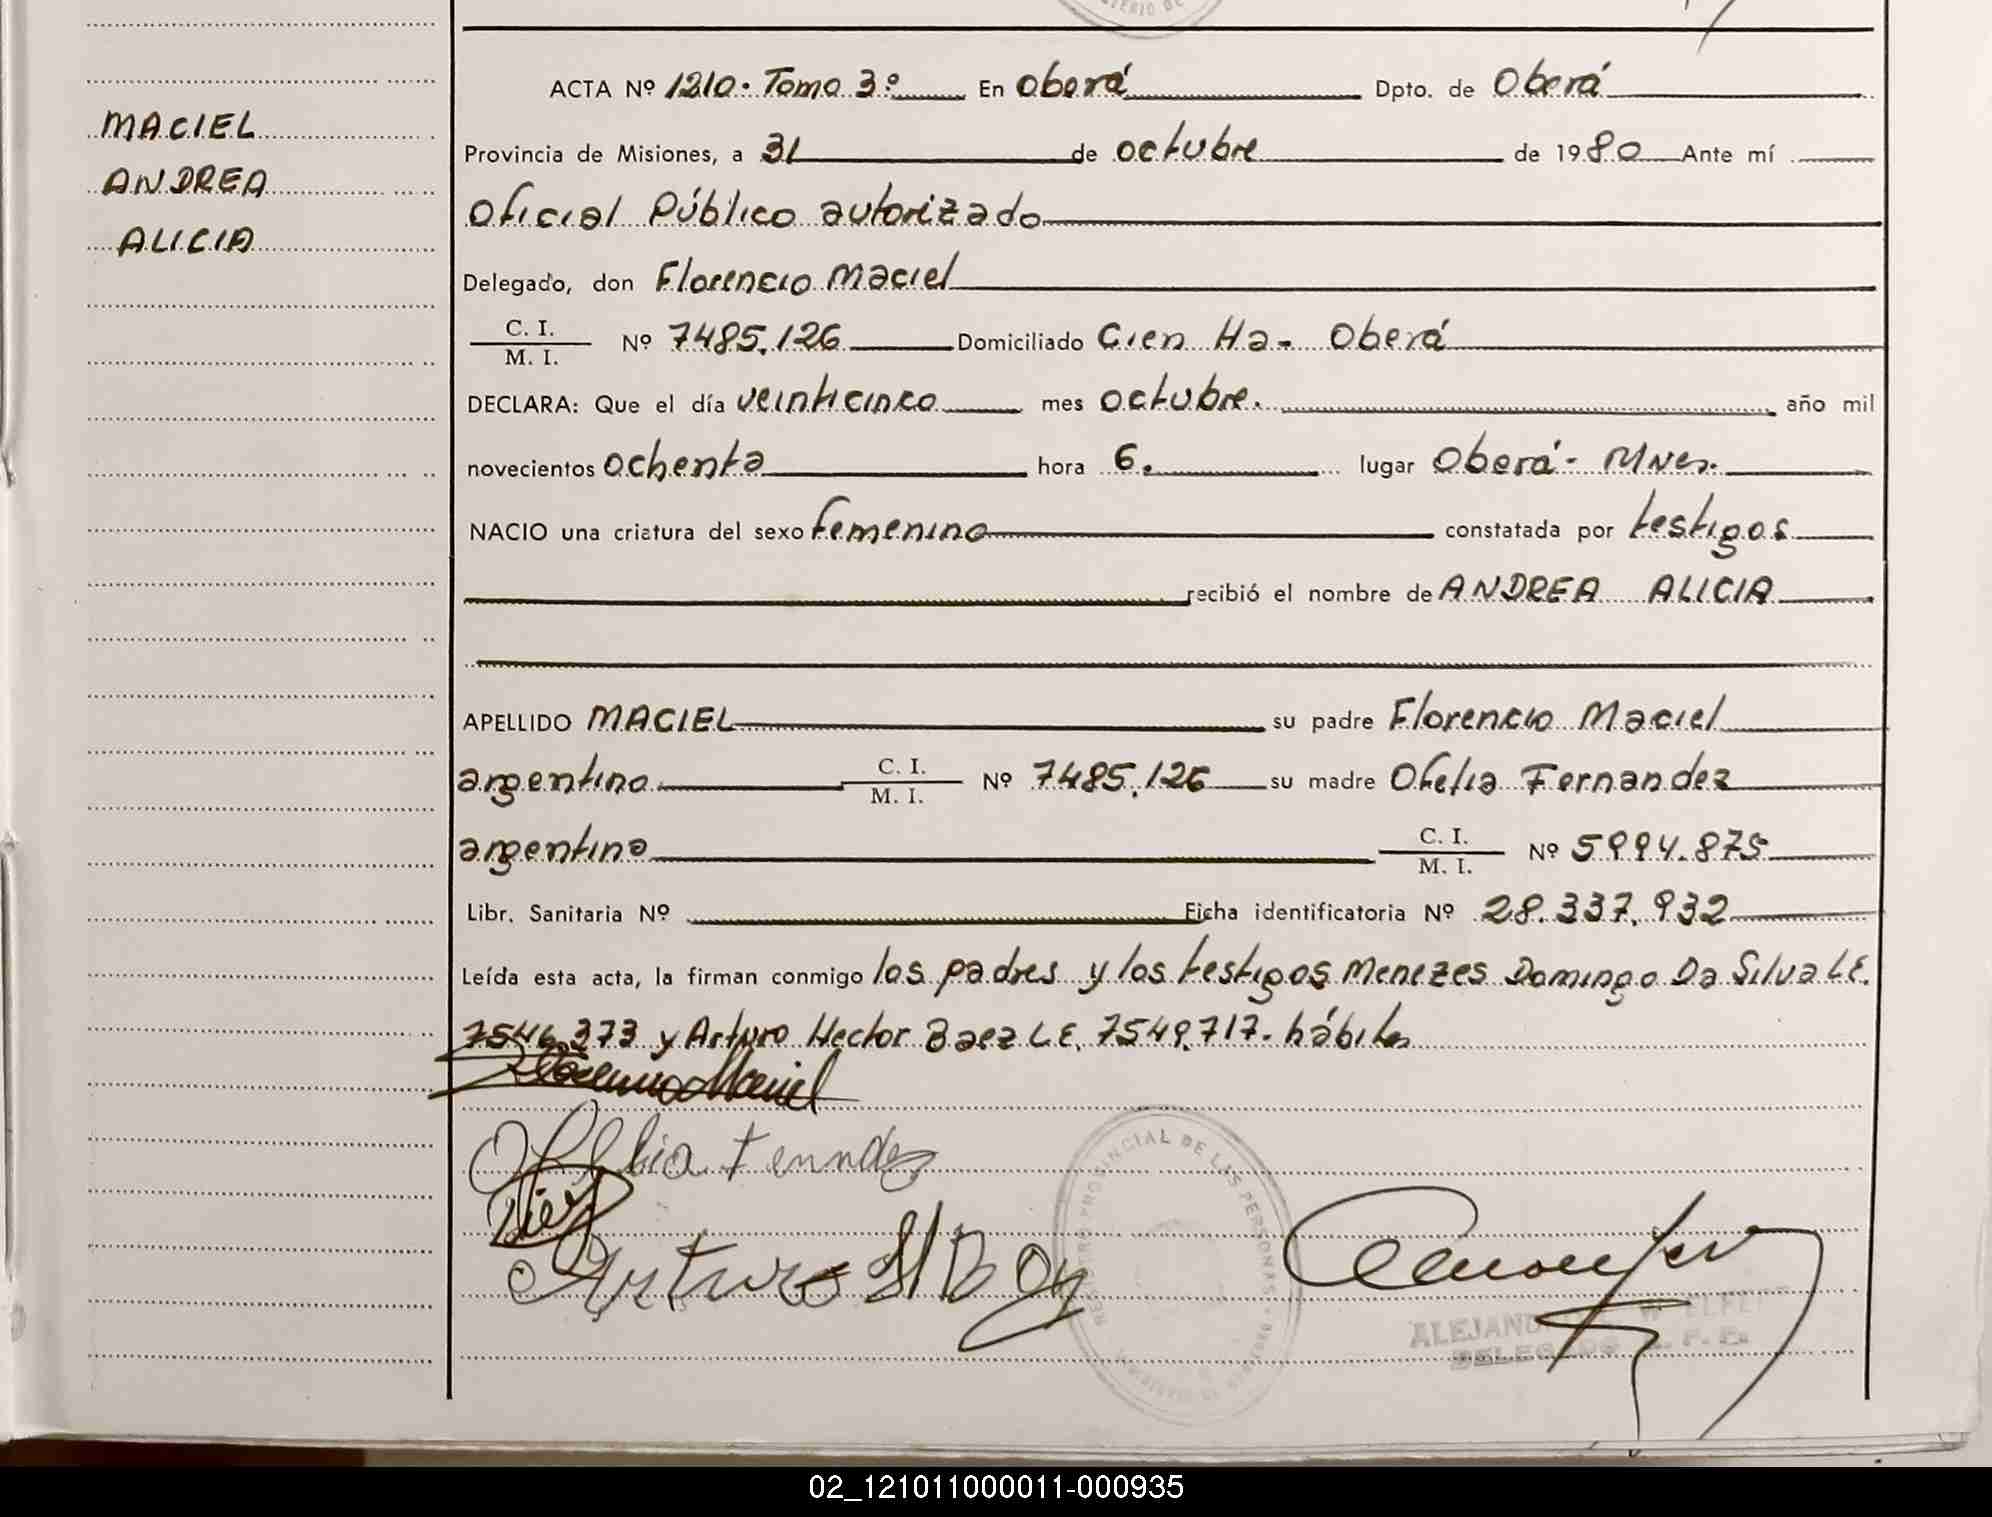 MACIEL
ANDREA
ALICIA
ACTA Nº 1210. Tomo 3º En Oberá Dpto. de Oberá
Provincia de Misiones, a 31 de octubre de 1980 Ante mí
Oficial Público autorizado
Delegado, don Florencio Maciel
C. I.
M. I.
Nº 7485.126 Domiciliado Cien Ha- Oberá
DECLARA: Que el día veinticinco mes octubre. año mil
novecientos ochenta hora 6. lugar Oberá- Mnes.
NACIO una criatura del sexo femenino constatada por testigos
recibió el nombre de ANDREA ALICIA
APELLIDO MACIEL su padre Florencio Maciel
argentino C. I.
M. I.
Nº 7485.126 su madre Ofelia Fernandez
argentina C. I.
M. I.
Nº 5994.875
Libr. Sanitaria Nº Ficha identificatoria Nº 28.337.932
Leída esta acta, la firman conmigo los padres y los testigos Menezes Domingo Da Silva L.E.
7546.373 y Arturo Hector Baez L.E. 7549.717. hábiles
Florencio Maciel
Arturo H B
REGISTRO PROVINCIAL DE LAS PERSONAS
ALEJAN
DELEGADO R. P. P.
02_121011000011-000935